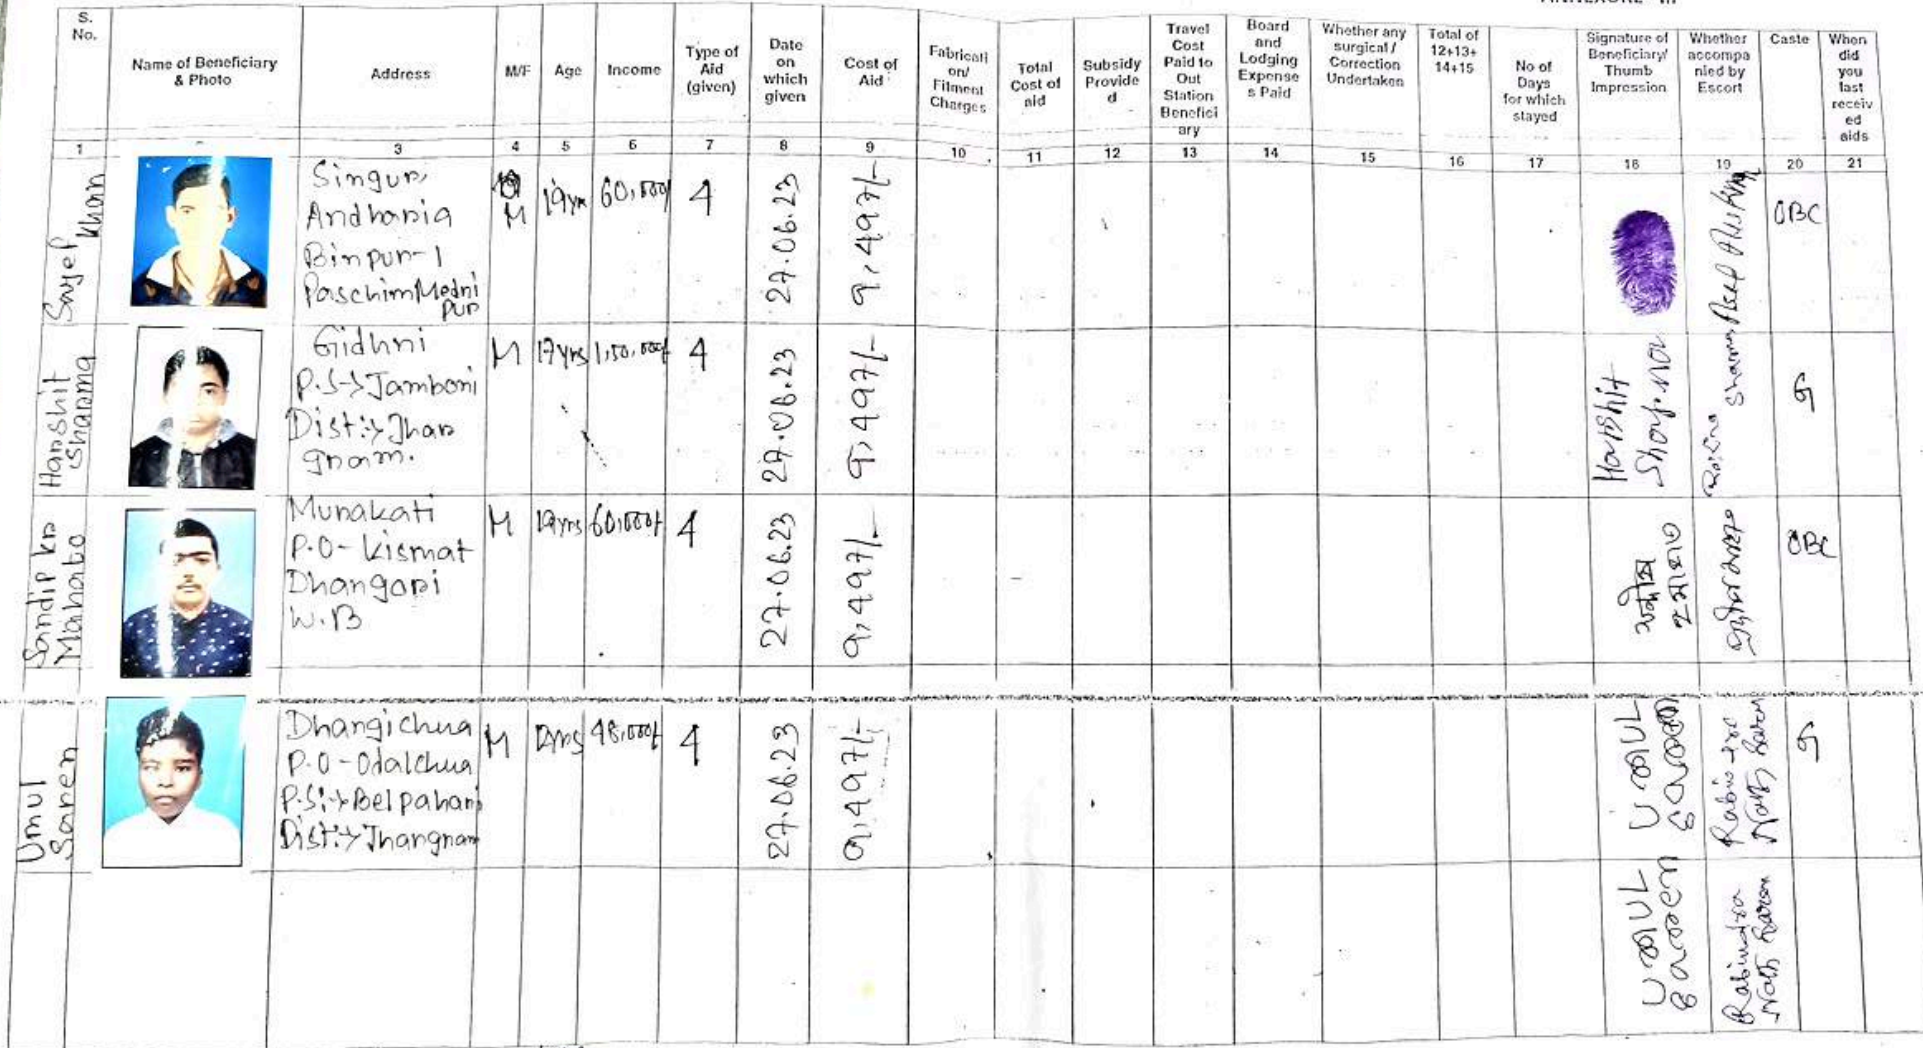 ANNEXURE III
S. No.
Name of Beneficiary & Photo
Address
M/F
Age
Income
Type of Aid (given)
Date on which given
Cost of Aid
Fabricati on/ Fitment Charges
Total Cost of aid
Subsidy Provide d
Travel Cost Paid to Out Station Benefici ary
Board and Lodging Expense s Paid
Whether any surgical / Correction Undertaken
Total of 12+13+ 14+15
No of Days for which stayed
Signature of Beneficiary/ Thumb Impression
Whether accompa nied by Escort
Caste
When did you last receiv ed aids
1 3 4 5 6 7 8 9 10 11 12 13 14 15 16 17 18 19 20 21
Sayef
Khan
Singur,
Andharia
Binpur-1
Paschim Medni
pur
M
19yrs
60,000/
4
27.06.23
9,497/-
OBC
Harshit
Sharma
Gidhni
P.S-> Jamboni
Dist:-> Jhar
gram.
M
17yrs
1,50,000/
4
27.06.23
9,497/-
Harshit
Sharma
Sharma
G
Sandip kr
Mahato
Munakati
P.O- Kismat
Dhangari
W.B
M
19yrs
60,000/
4
27.06.23
9,497/-
সন্দীপ
মাহাত
OBC
Umul
Saren
Dhangichua
P.O-Odalchua
P.S:-> Belpahari
Dist:-> Jhargram
M
48,000/
4
27.06.23
9,497/-
Rabindra
Nath Saren
G
Rabindra
Nath Saren